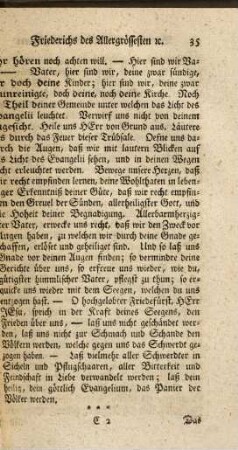 Friederichs des Allergrössesten ꝛc. 35
yr hören noch achten will. — Hier sind wir Va-
Vater, hier sind wir, deine zwar sündige,
r doch deine Kinder; hier sind wir, deine zwar
unreinigte, doch deine, noch deine Kirche. Noch
Theil deiner Gemeinde unter welchen das Licht des
vangelii leuchtet. Verwirf uns nicht von deinem
ngesicht. Heile uns HErr von Grund aus. Läutere
s durch das Feuer dieser Trübsale. Oefne uns da-
urch die Augen, daß wir mit lautern Blicken auf
s Licht des Evangelii sehen, und in deinen Wegen
cht erleuchtet werden. Bewege unsere Herzen, daß
ir recht empfinden lernen, deine Wohlthaten in leben-
ger Erkenntniß deiner Güte, daß wir recht empfin-
n den Greuel der Sünden, allerheiligster Gott, und
ie Hoheit deiner Begnadigung. Allerbarmherzig-
er Vater, erwecke uns recht, daß wir den Zweck vor
lugen haben, zu welchen wir durch deine Gnade ge-
chaffen, erlöset und geheiliget sind. Und so laß uns
nade vor deinen Augen finden; so vermindre deine
Gerichte über uns, so erfreue uns wieder, wie du,
gütigster himmlischer Vater, pflegest zu thun; so er-
quick uns wieder mit dem Seegen, welchen du uns
entzogen hast. — O hochgelobter Friedefürst, HErr
JEsu, sprich in der Kraft deines Seegens, den
Frieden über uns, — laß uns nicht geschändet wer-
den, laß uns nicht zur Schmach und Schande den
Völkern werden, welche gegen uns das Schwerdt ge-
zogen haben. — Laß vielmehr aller Schwerdter in
Sicheln und Pflugschaaren, aller Bitterkeit und
Feindschaft in Liebe verwandelt werden; laß dein
heilig, dein göttlich Evangelium, das Panier der
Völker werden.
* * *
C 2 Das